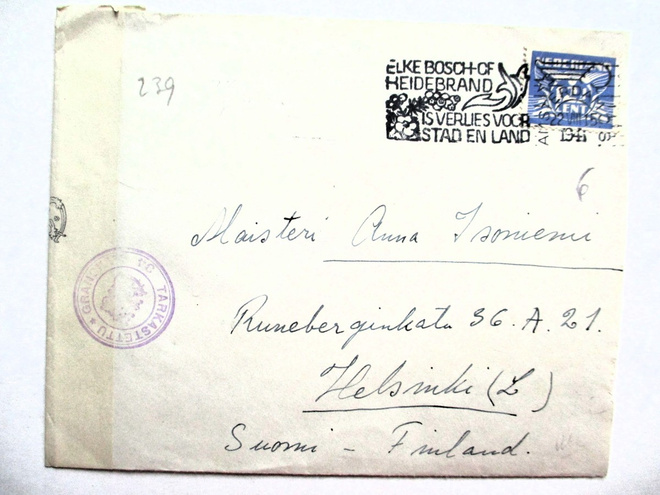 239
ELKE BOSCH- OF
HEIDEBRAND
IS VERLIES VOOR
STAD EN LAND
NEDERLAND
CENT
1941
6
Maisteri Anna Isoniemi
TARKASTETTU
Runeberginkatu 36. A. 21.
Helsinki (L)
Suomi - Finland.